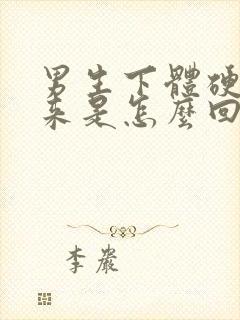 男生下體硬
來是怎麼回
李嚴